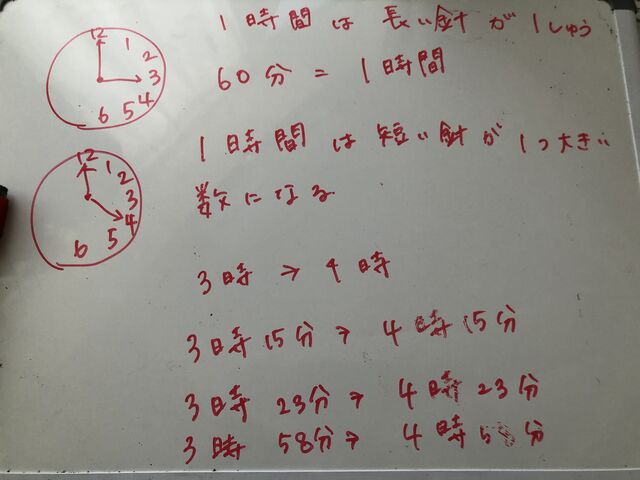 12
1
2
3
4
5
6
1時間は長い針が1しゅう
60分=1時間
12
1
2
3
4
5
6
1時間は短い針が1つ大きい
数になる
3時→4時
3時15分→4時15分
3時23分→4時23分
3時58分→4時58分